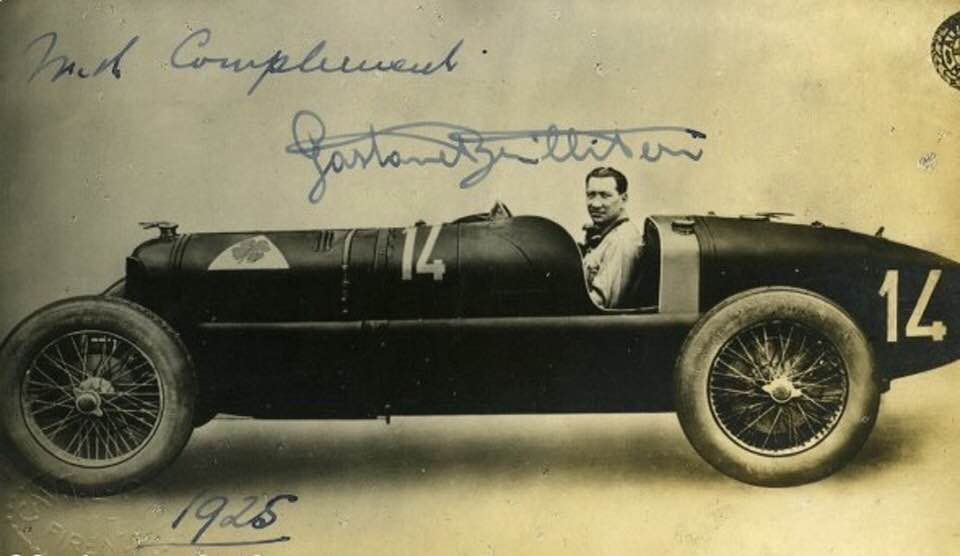 With Complement.
Gastone Brilli Peri
14
14
1925